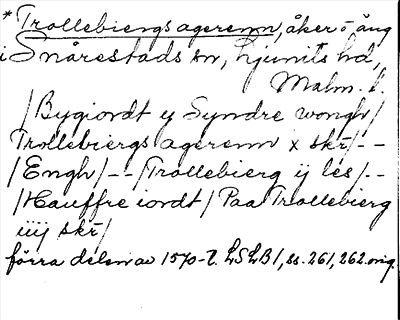 * Trollebiergs agerenn, åker o. äng
i Snårestads sn, Ljunits hd,
Malm. l.
/Bygiordt y Syndre wongh/
Trollebiergs agerenn x skr/--
/Engh/--/Trollebierg ij les/--
/Hauffre iordt/Paa Trollebierg
iiij skr/
förra delen av 1570-t. LSLB 1, ss. 261, 262. orig.